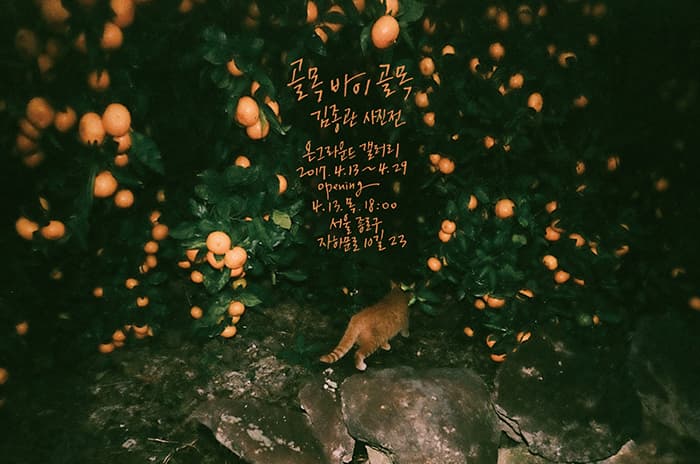 골목 바이 골목
김종관 사진전
온그라운드 갤러리
2017. 4.13 ~ 4.29
opening
4.13. 목. 18:00
서울 종로구
자하문로 10길 23